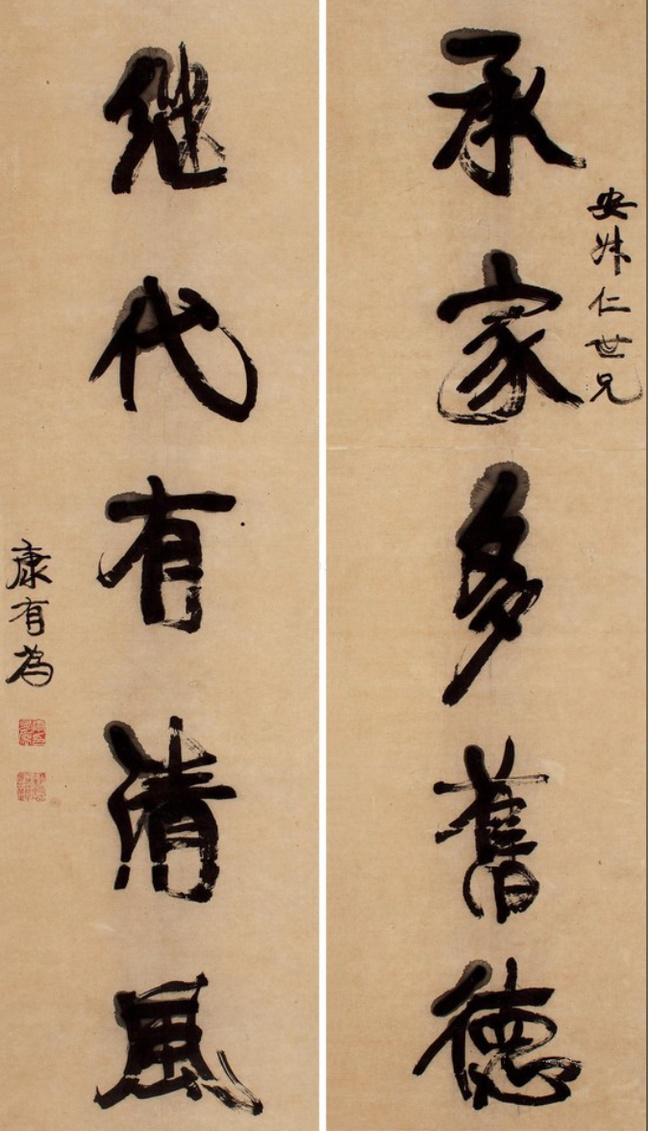 承家多舊德
安㑄仁世兄
继代有清風
康有為